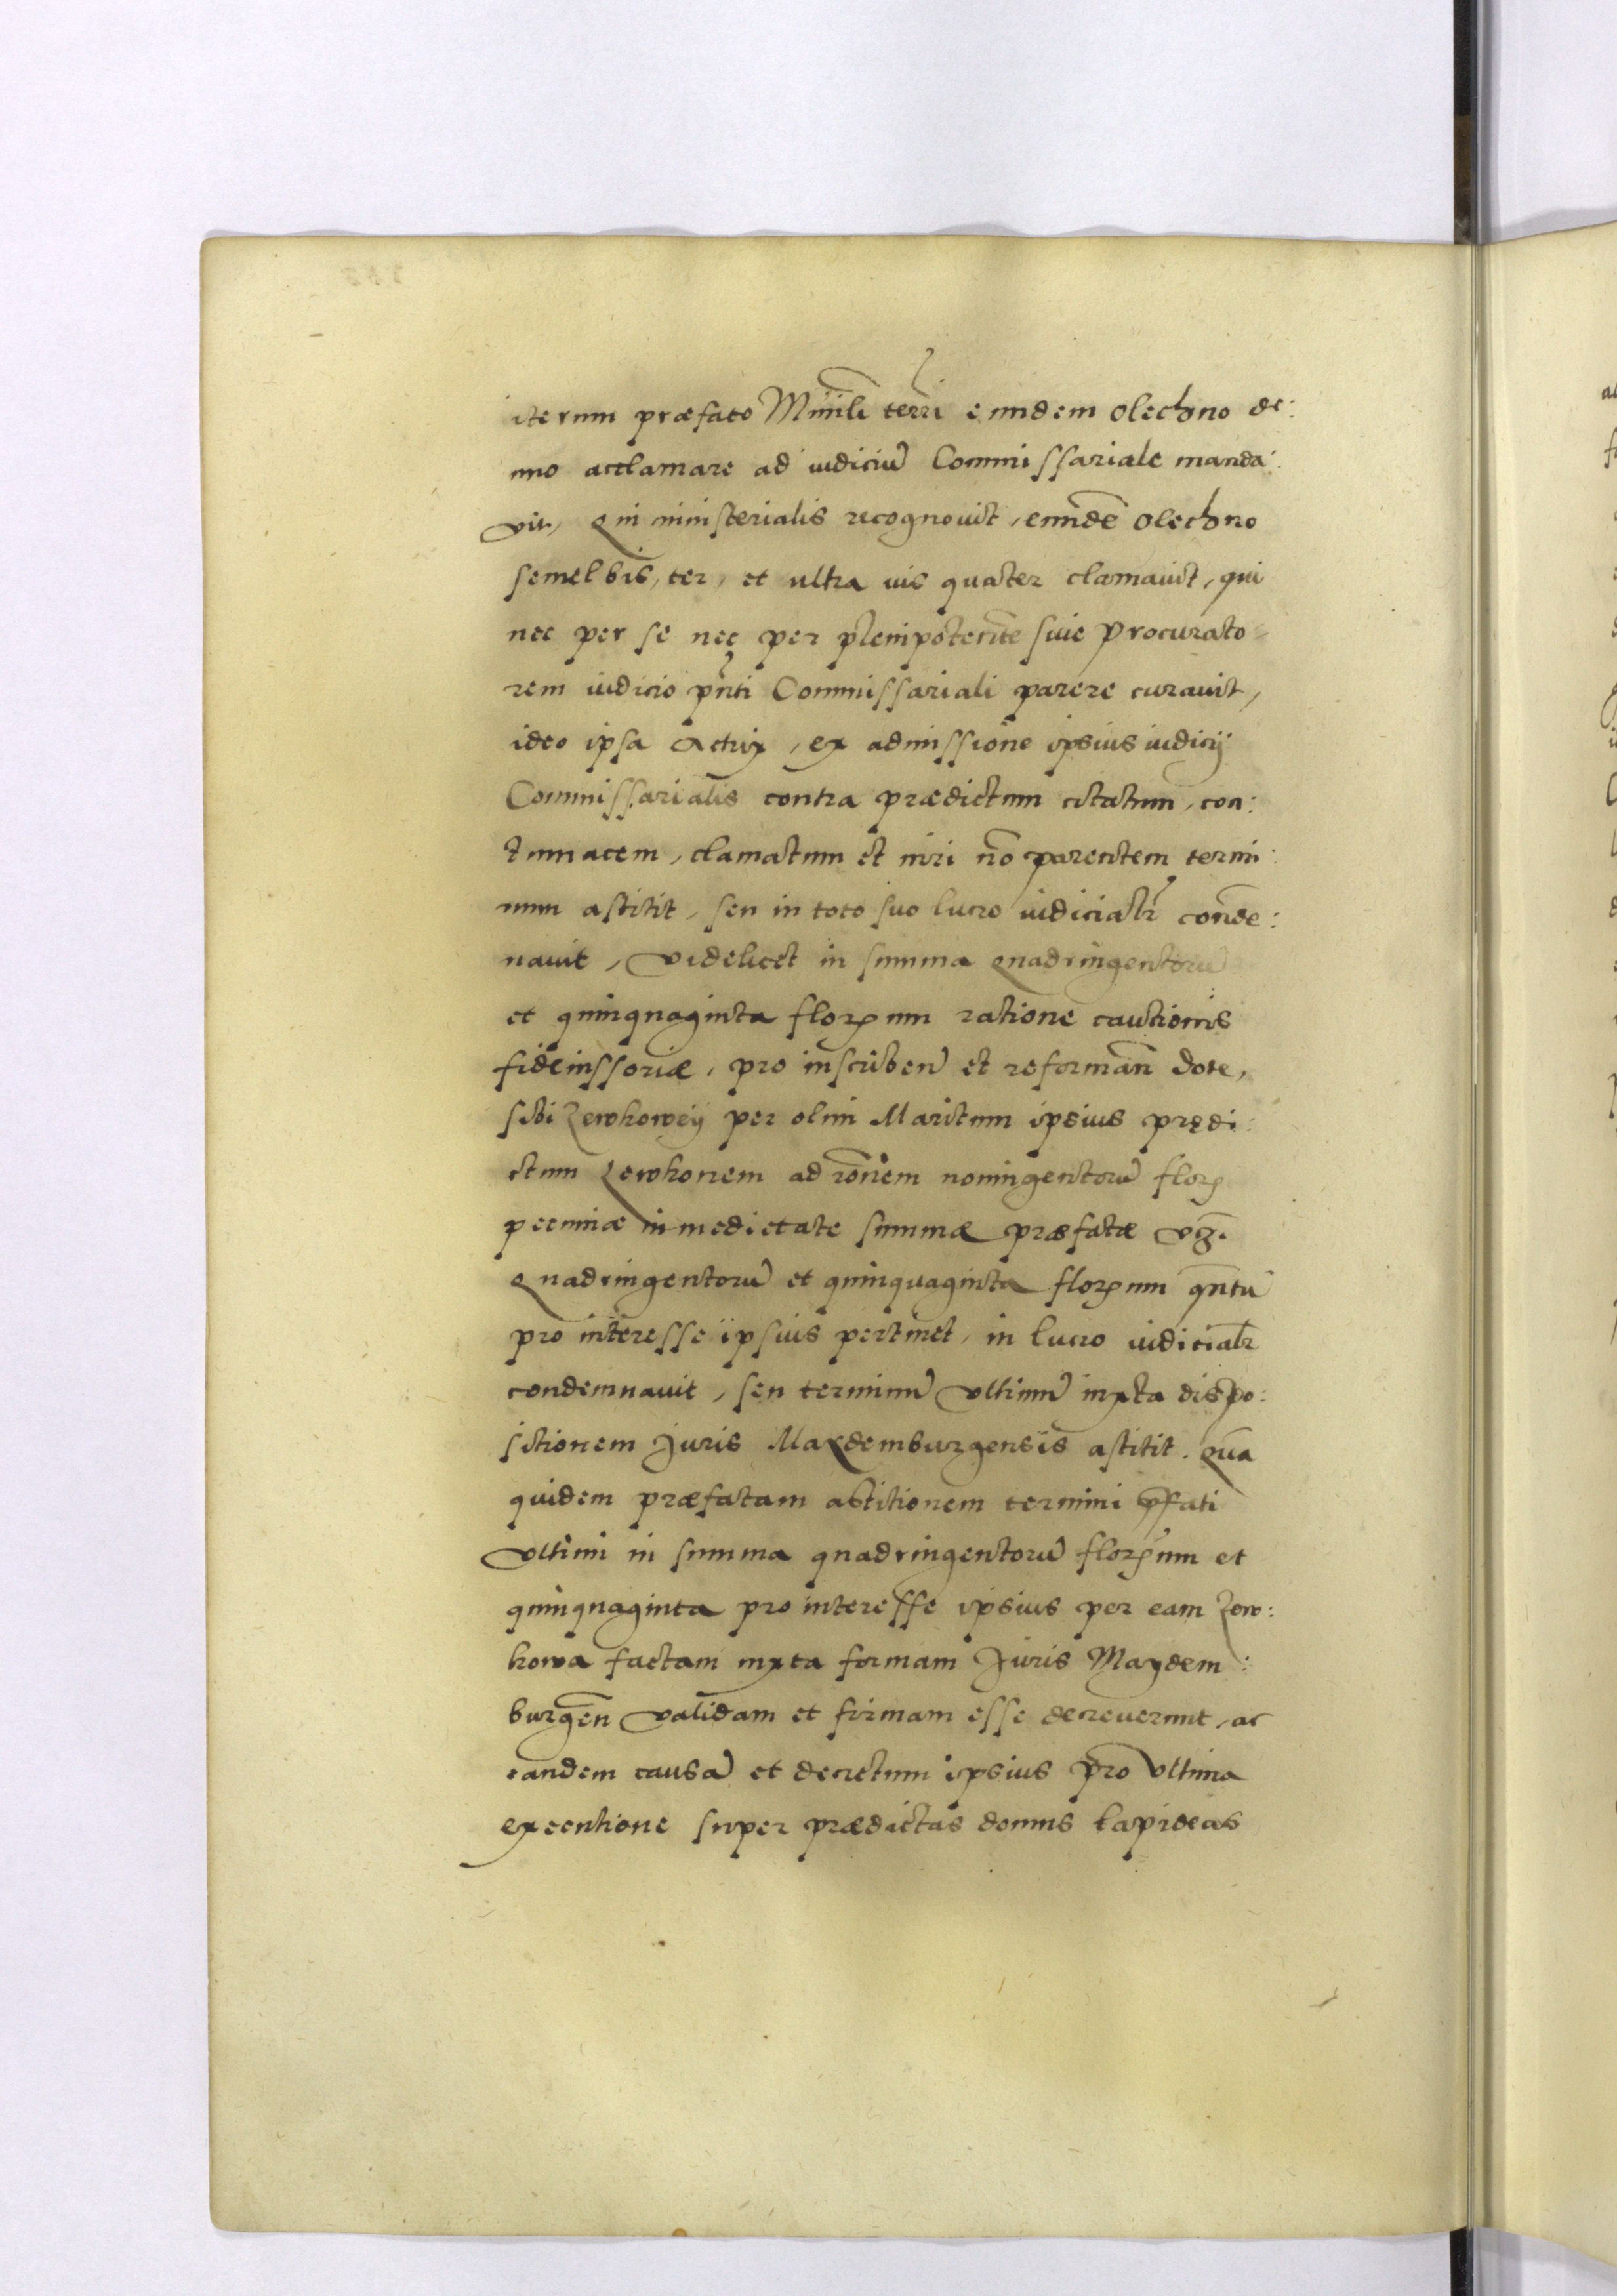 iterum præfato Mnīli terrī eundem Olechno de:
nuo acclamare ad iudiciū Commissariale manda:
vit, Qui ministerialis recognouit, eundē Olechno
semel bis, ter, et ultra uis quater clamauit, qui
nec per se neq per plenipotentē suū Procurato
rem iudicio pn̄ti Commissariali parere curauit,
ideo ipsa Actrix, ex admissione ipsius iudicij
Commissarialis contra prædictum citatum, con:
tumacem, clamatum et iuri nō parentem termi:
num astitit, seu in toto suo lucro iudicialr̄ conde:
nauit, Videlicet in summa Quadringentorū
et quinquaginta florenum ratione cautionis
fideiussoriæ, pro inscriben̄ et reforman̄ dote,
sibi Zewkoweij per olim Maritum ipsius prędi:
ctum Zewkonem ad rōnem noningentorū flor
pecuniæ in medietate summæ præfatæ vz.
Quadringentorū et quinquaginta florenum qn̄tū
pro interesse ipsius pertinet, in lucro iudicialr̄
condemnauit, seu terminū Vltimū iuxta dispo:
sitionem Juris Maydemburgensis astitit. Quā
quidem præfatam astitionem termini p̄fati
Vltimi in summa quadringentorū florenum et
quinquaginta pro interesse ipsius per eam Zew:
kowa factam iuxta formam Juris Maydem:
burgēn Validam et firmam esse decreuerunt, ac
eandem causā et decretum ipsius pro Vltima
executione super prædictas domus lapideas